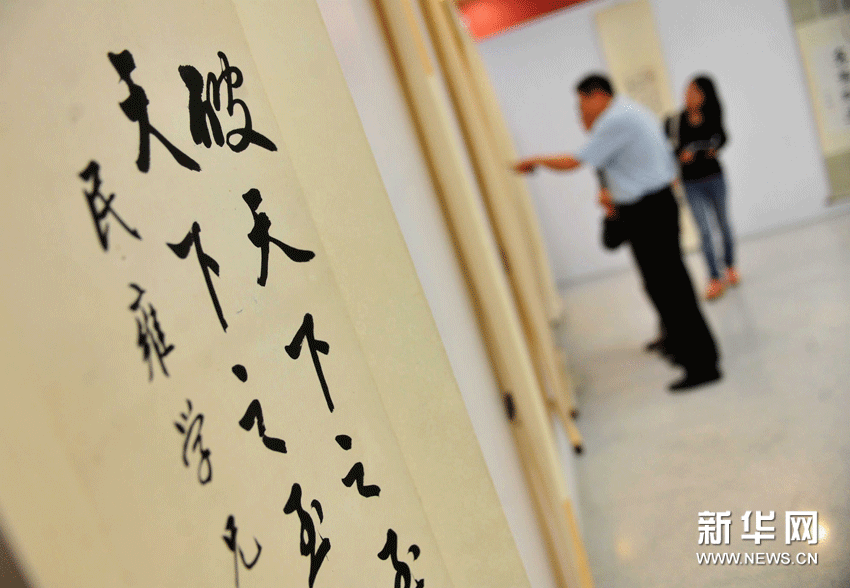 破天下之至
天下之至
民雍学兄
新华网
WWW.NEWS.CN